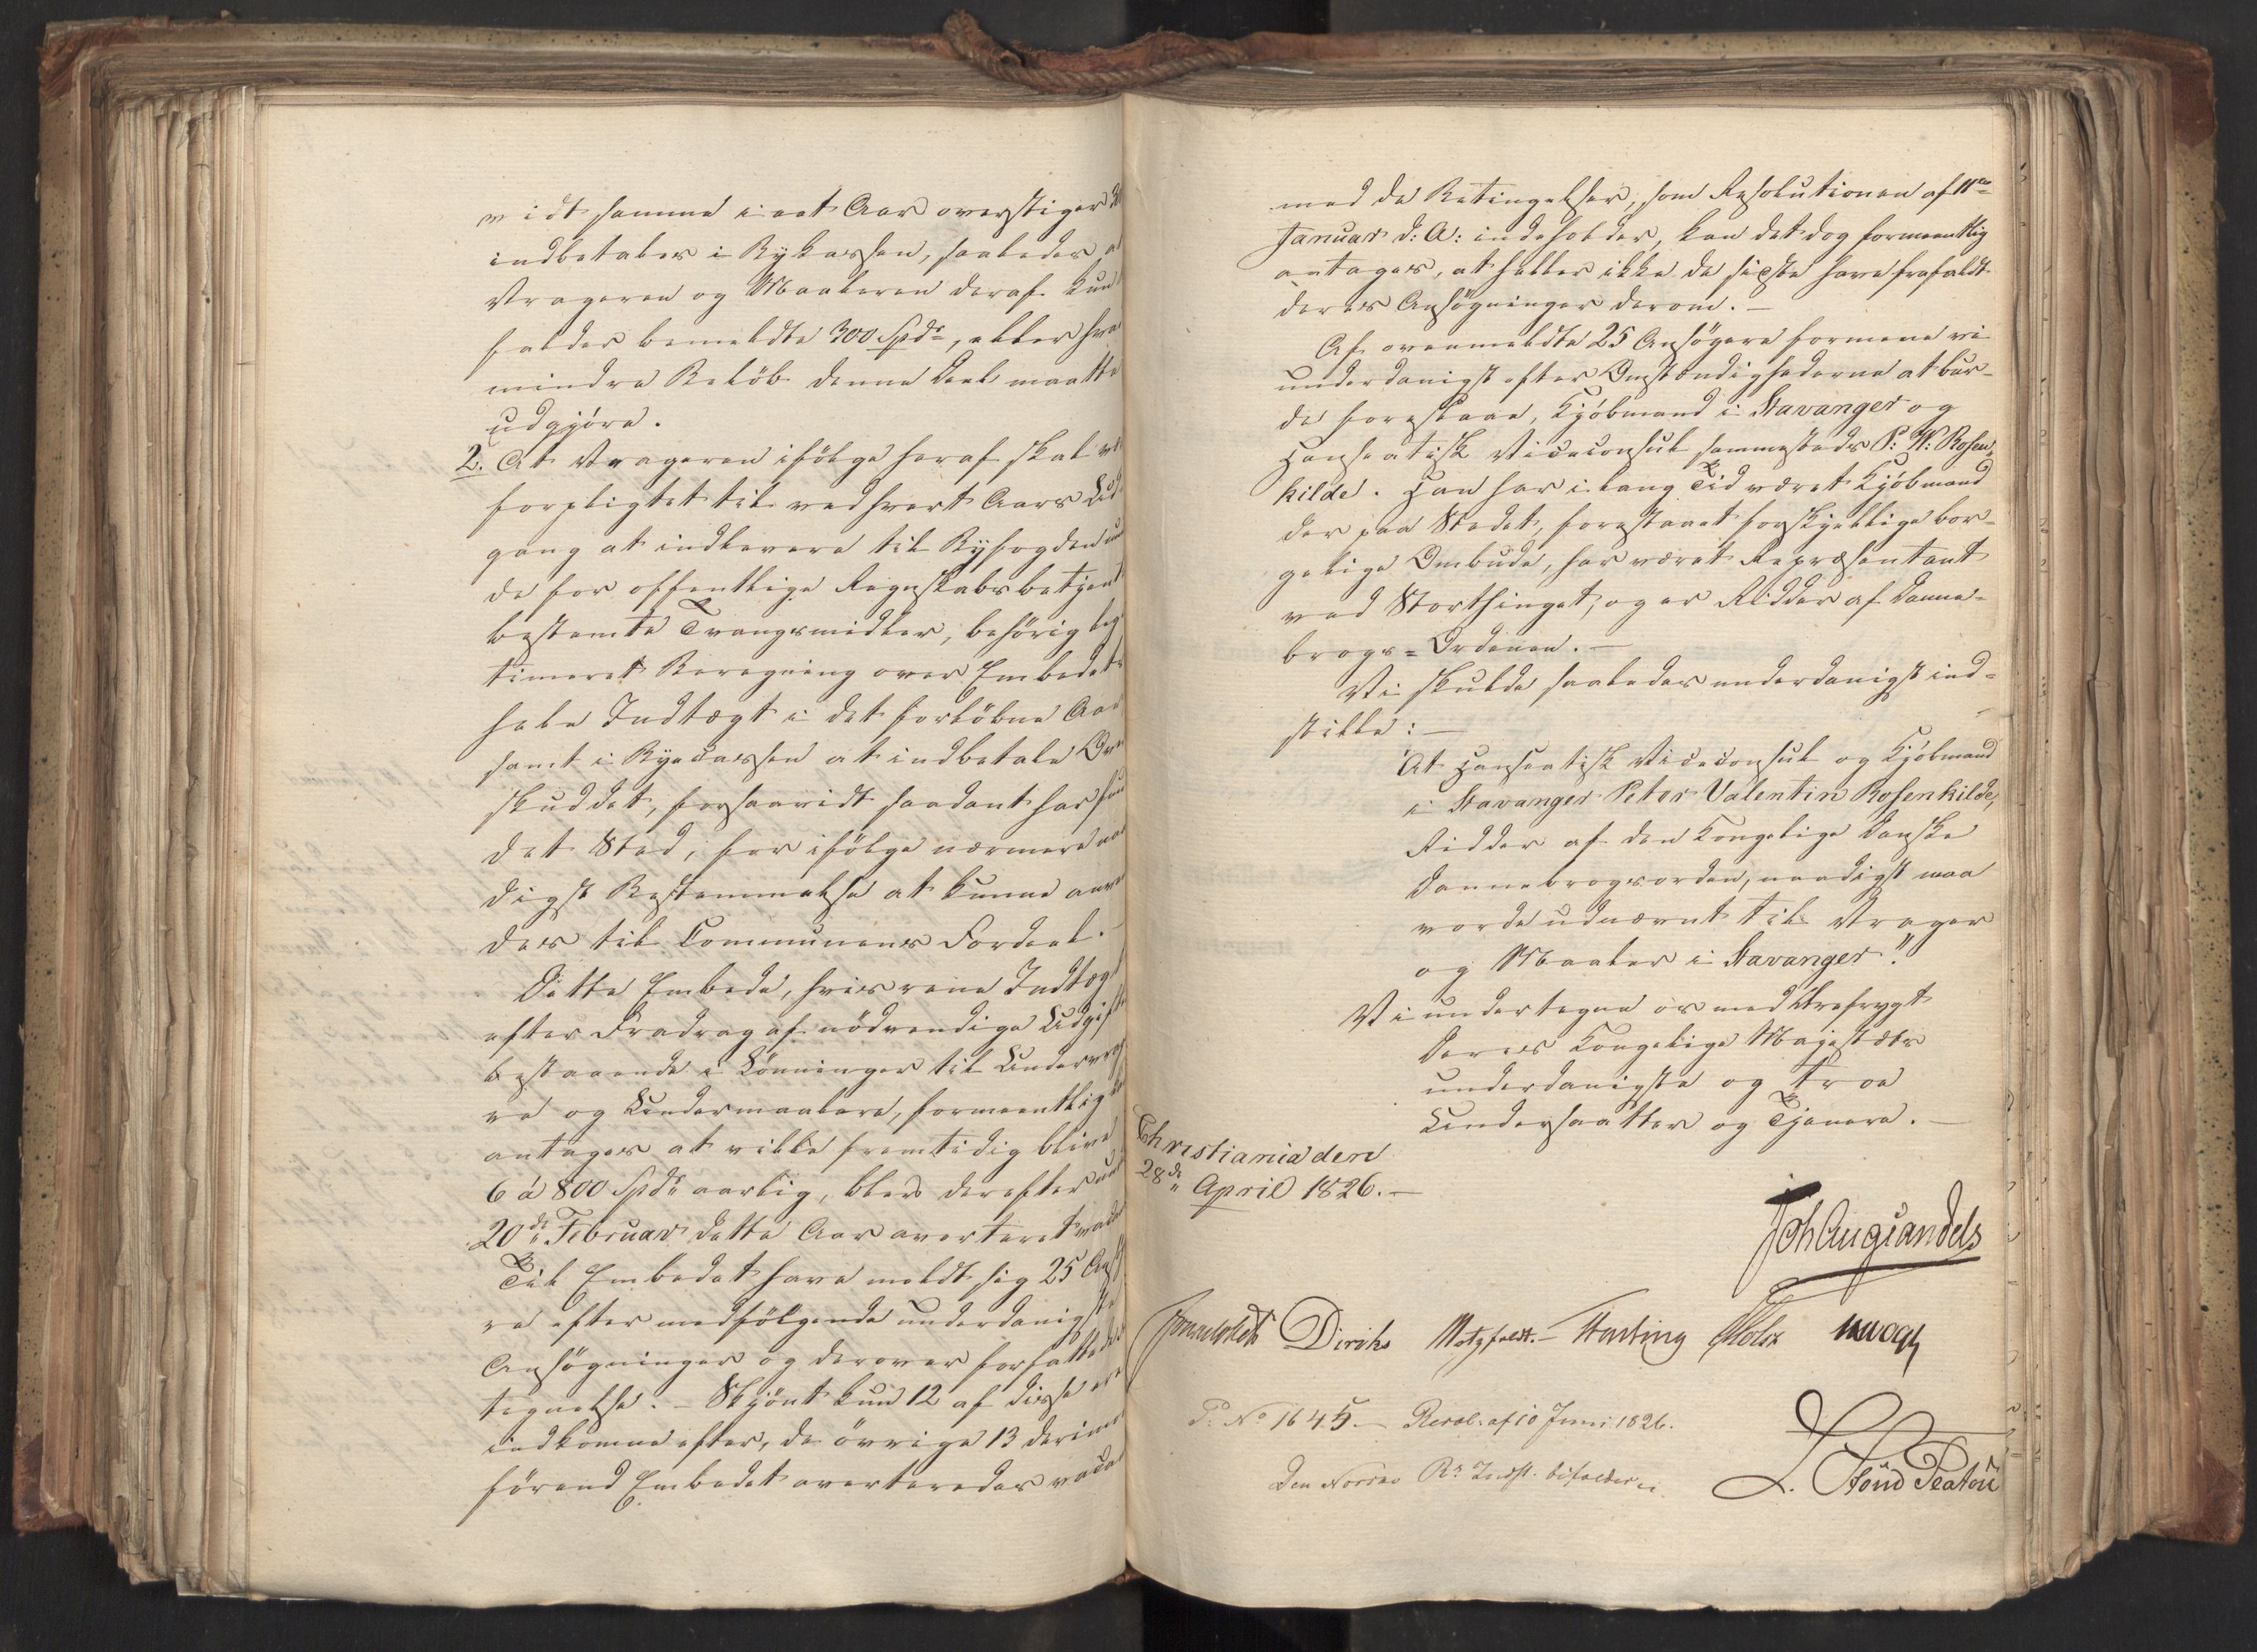 vidt samme i eet Aar overstiger
indbetales i Bykassen, saaledes
Vrageren og Maaleren deraf kun
falder bemeldte 300 Spdr, eller hva
mindre Beløb denne Deel maatte
udgjøre.
2. At Vrageren ifølge heraf skal
forpligtet til ved hvert Aars Ud
gang at indlevere til Byfogden
de for offentlige Regnskabsbetjent
bestemte Tvangsmidler, behørig leg
timeret Beregning over Embedets
hele Indtægt i det forløbne Aar
samt i Byecassen at indbetale Over
skuddet, forsaavidt saadant har fun
det Sted, for ifølge nærmere naa
digst Bestemmelse at kunne anven
des til Communens Fordeel.
Dette Embede, hvis rene Indtægt
efter Fradrag af nødvendige Udgifte
bestaaende i Lønninger til Undervrag
re og Undermaalere, formeentlig
antages at ville fremtidig blive
6 á 800 Spdr aarlig, blev derefter
20de Februar dette Aar averteret
Til Embedet have meldt sig 25 Ansø
re efter medfølgende underdanigste
Ansøgninger og derover forfattede
tegnelse. – Skjønt kun 12 af disse ere
indkomne efter, de øvrige 13 derimod
førend Embedet averteredes
med de Betingelser, som Resolutionen af 11te
Januar d: A: indeholder, kan det dog formeentlig
antages, at heller ikke de sidste have frafaldt
deres Ansøgninger derom. –
Af ovenmeldte 25 Ansøgere formene vi
underdanigst efter Omstændighederne at bur-
de foreslaae, Kjøbmand i Stavanger og
Hanseatisk Viceconsul sammesteds P: W: Rosen-
kilde. Han har i lang Tid været Kjøbmand
der paa Stedet, forestaaet forskjellige bor-
gelige Ombude, har været Repræsentant
ved Storthinget, og er Ridder af Danne-
brogs-Ordenen. –
Vi skulde saaledes underdanigst ind-
stille: –
"At Hanseatisk Viceconsul og Kjøbmand
i Stavanger Peter Valentin Rosenkilde,
Ridder af den Kongelige Danske
Dannebrogsorden, naadigst maa
vorde udnævnt til Vrager
og Maaler i Stavanger."
Vi undertegne os med Ærefrygt
Deres Kongelige Majestæts
underdanigste og troe
Undersaatter og Tjenere. –
Christiania den
28de April 1826. –
Joh Aug Sandels
Sommerfeldt Diriks Motzfeldt. – Fasting Holst
P: No 1645. – Resol. af 10 Juni 1826.
Den Norske Rs Indst. bifaldes